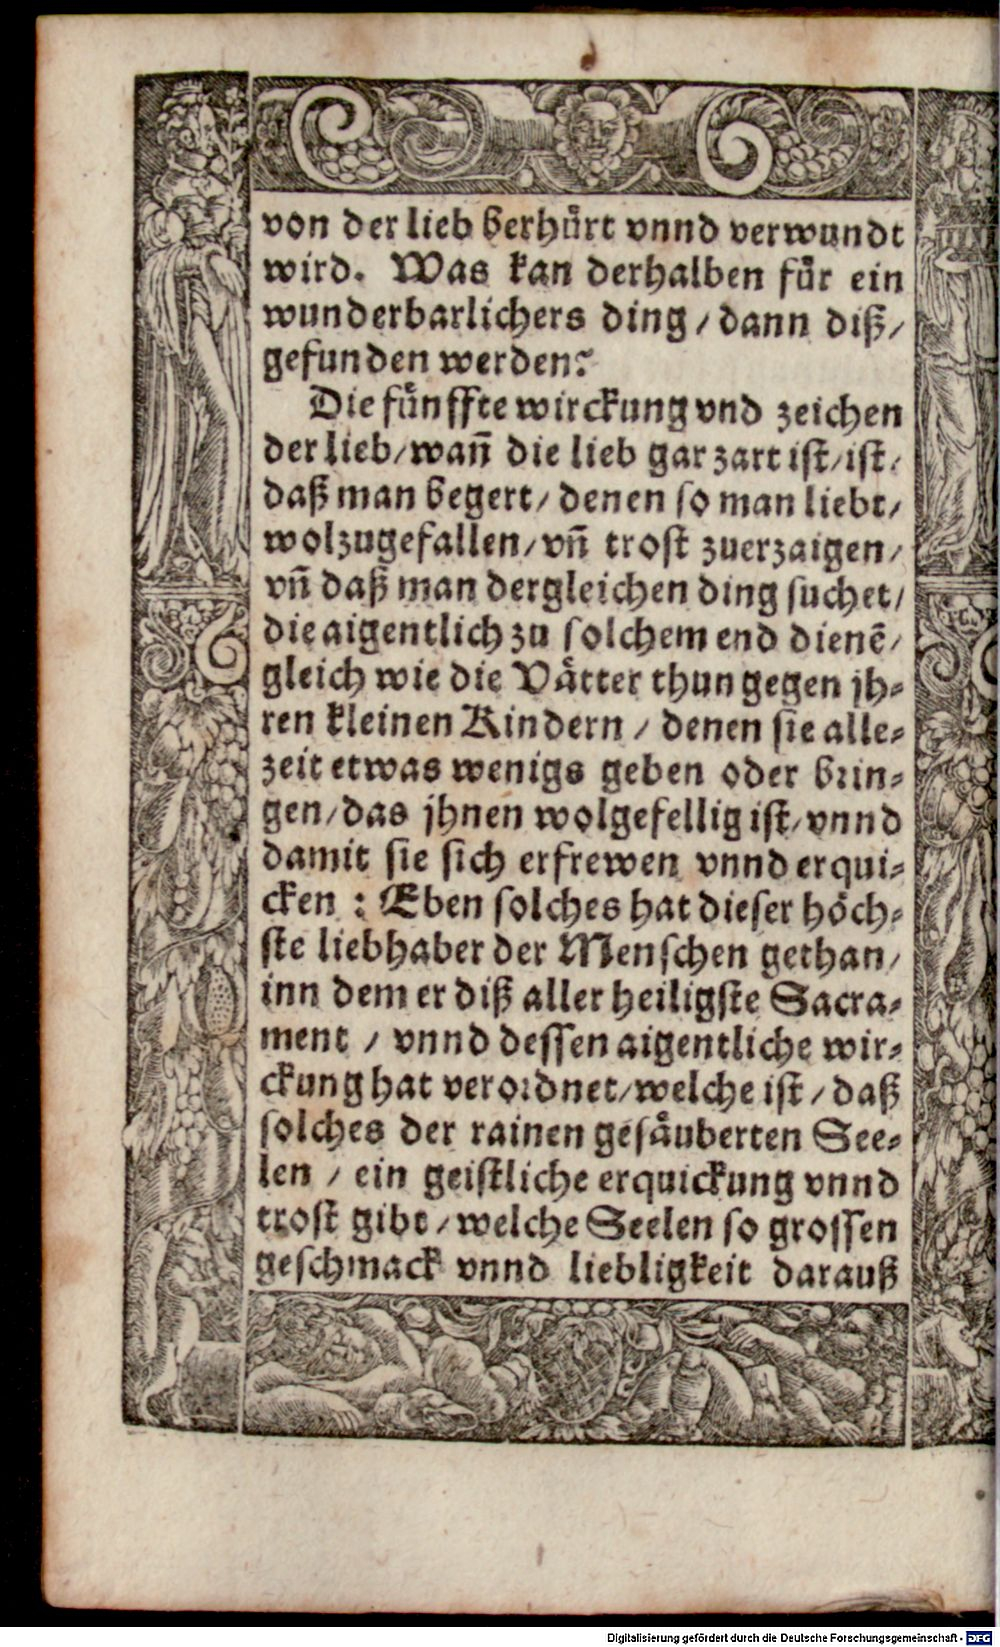 von der lieb berhuͤrt vnnd verwundt
wird. Was kan derhalben fuͤr ein
wunderbarlichers ding / dann diß /
gefunden werden?
Die fuͤnffte wirckung vnd zeichen
der lieb / wañ die lieb gar zart ist / ist /
daß man begert / denen so man liebt /
wolzugefallen / vñ trost zuerzaigen /
vñ daß man dergleichen ding suchet /
die aigentlich zu solchem end dienẽ /
gleich wie die Vaͤtter thun gegen jh⸗
ren kleinen Kindern / denen sie alle⸗
zeit etwas wenigs geben oder brin⸗
gen / das jhnen wolgefellig ist / vnnd
damit sie sich erfrewen vnnd erqui⸗
cken : Eben solches hat dieser hoͤch⸗
ste liebhaber der Menschen gethan /
inn dem er diß aller heiligste Sacra⸗
ment / vnnd dessen aigentliche wir⸗
ckung hat verordnet / welche ist / daß
solches der rainen gesaͤuberten See⸗
len / ein geistliche erquickung vnnd
trost gibt / welche Seelen so grossen
geschmack vnnd liebligkeit darauß
Digitalisierung gefördert durch die Deutsche Forschungsgemeinschaft - DFG